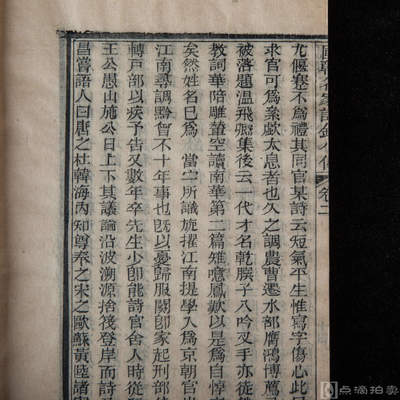 尤偃蹇不為禮其同官某詩云短氣平生惟寫字傷心此
求官可為累歔太息者也久之調農曹遷水部膺鴻博薦
被落題溫飛卿集後云一代才名乾𦠆子八吟叉手亦徒
教詞華陪雕輦空讀南華第二篇雉噫鳳歎以是為自悼
矣然姓名已為 當宁所識旋擢江南提學入為京朝官
江南尋調黔會不十年事也既以憂歸服闋卽家起刑
轉戶部以疾予告又數年卒先生少卽能詩官舍人時從
王公愚山施公日上下其議論沿波溯源捨筏登岸而詩
昌嘗語人曰唐之杜韓海內知尊奉之宋之歐蘇黃陸諸
卷二
点滴拍卖